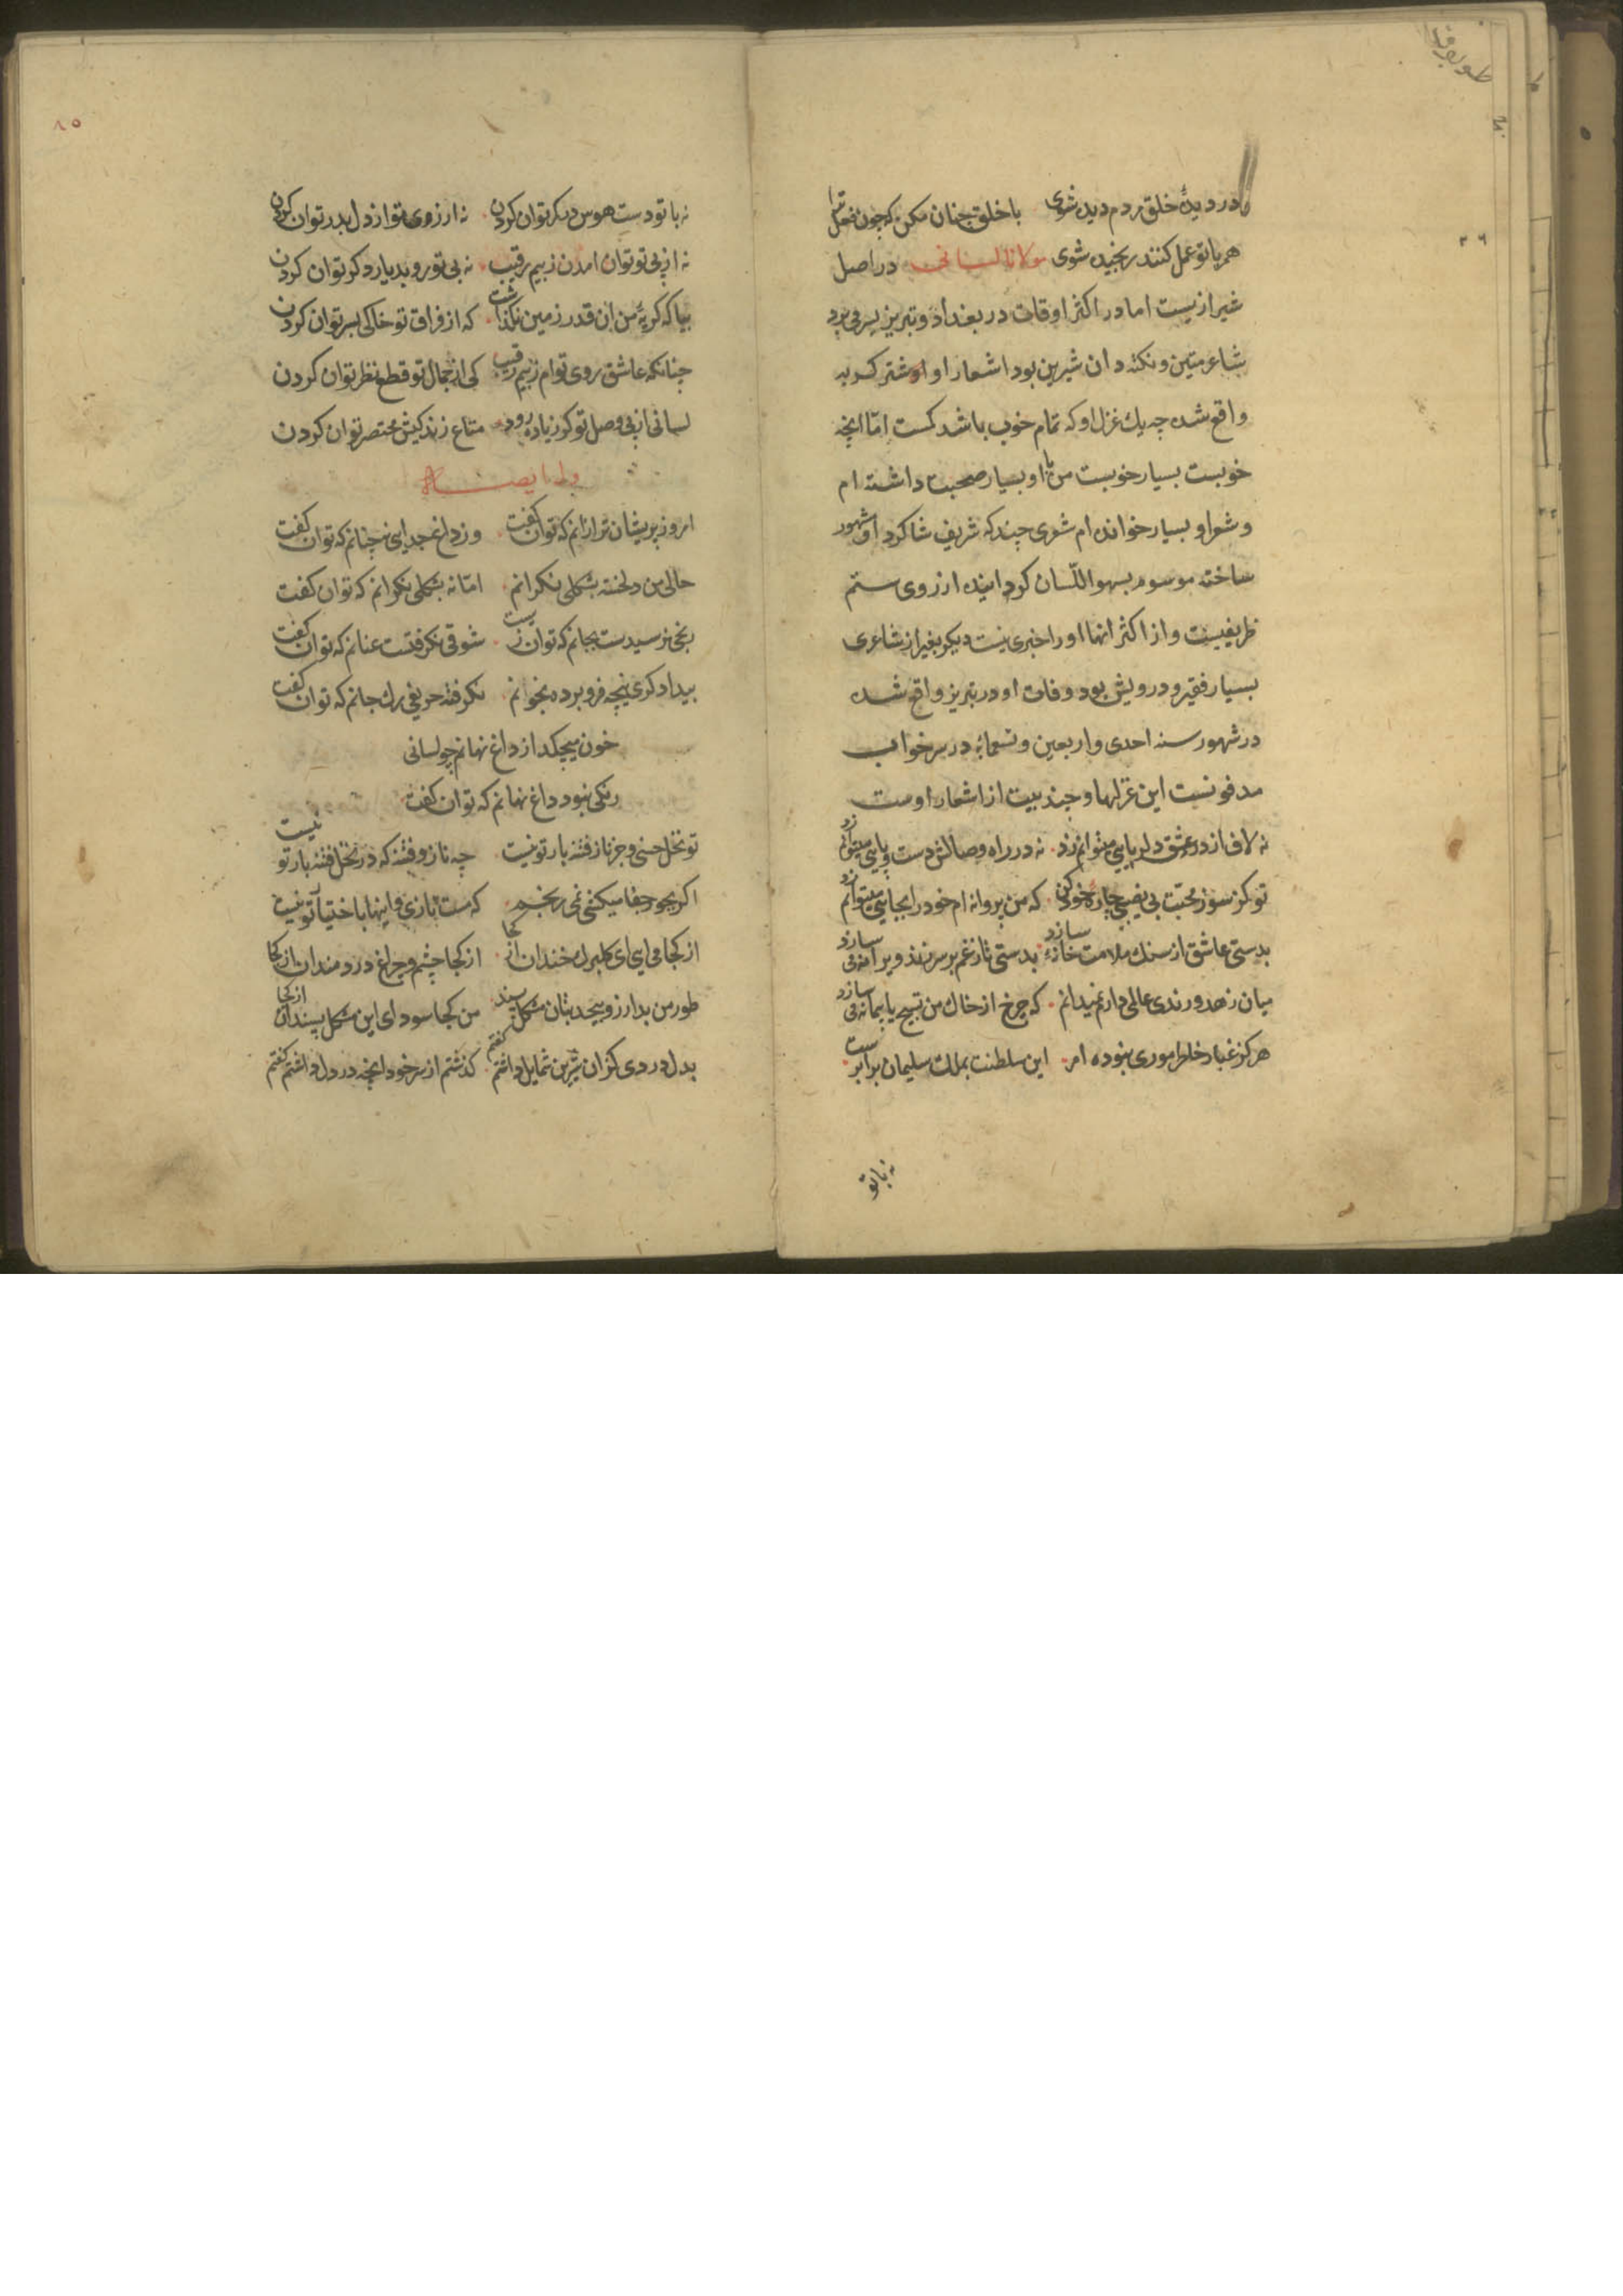 در دیدهٔ خلق مردم دیده شوی با خلق چنان مکن که چون فعل ترا
هم با تو عمل کنند رنجیده شوی مولانا لسانی در اصل
شیرازیست اما در اکثر اوقات در بغداد و تبریز بسر می برد
شاعر متین و نکته دان شیرین بود اشعار او اوشتر کربه
واقع شده چه یک غزل او که تمام خوب باشد کمست امّا انچه
خوبست بسیار خوبست من با او بسیار صحبت داشته ام
و شعر او بسیار خوانده ام شعری چند که شریف شاکرد او مشهور
ساخته موسوم بسهو اللّسان کردانیده از روی ستم
ظریفیست و از اکثر انها او را خبری نیست دیکر بغیر از شاعری
بسیار فقیر و درویش بود وفات او در تبریز واقع شده
در شهور سنه احدی و اربعین و تسعمائه در سرخواب
مدفونست این غزلها و چند بیت از اشعار اوست
نه لاف از درد عشق دلربایی میتوانم زد نه در راه وصالش دست و پایی میتوانم زد
تو کز سوز محبّت بی نصیبی چاره خود کن که من پروانه ام خود را بجایی میتوانم زد
بدستی عاشق از سنک ملامت خانه سازد بدستی تا زغم بر سر زند ویرانه می سازد
میان زهد و رندی عالمی دارم نمیدانم که چرخ از خاک من تسبیح یا پیمانه می سازد
هرکز غبار خاطر موری نبوده ام این سلطنت بملک سلیمان برابرست
نه با تو
نه با تو دست هوس در کمر توان کردن نه ارزوی تو از دل بدر توان کردن
نه از پی تو توان امدن ز بیم رقیب نه بی تو رو بدیار دکر توان کردن
بیا که کریهٔ من ان قدر زمین نکذاشت که از فراق تو خاکی بسر توان کردن
چنانکه عاشق روی توام ز بیم رقیب کی از جمال تو قطع نظر توان کردن
لسانی از پی وصل تو کر زیاده رود متاع زندکیش مختصر توان کردن
وله ایضاً
امروز پریشان تر ازانم که توان کفت وز داغ جدایی نه چنانم که توان کفت
حالی من دلخسته بشکلی نکرانم امّا نه بشکلی نکرانم که توان کفت
رنجی نرسیدست بجانم که توان زیست شوقی نکرفتست عنانم که توان کفت
بیداد کری پنجه فرو برده بخوانم نکرفته حریفی رک جانم که توان کفت
خون میچکد از داغ نهانم چو لسانی
رنکی نبود داغ نهانم که توان کفت
تو نخل حسنی و جز ناز و فتنه بار تو نیست چه ناز و فتنه که در نخل فتنه بار تو نیست
اکر بجور جفا میکنی نمی رنجم که مست نازی و اینها باختیار تو نیست
از کجا می ایی ای کلبرک خندان از کجا از کجا چشم و چراغ دردمندان از کجا
طور من بد ارزو بیحد بتان مشکل پسند من کجا سودای این مشکل پسندان از کجا
بدل دردی کز ان شیرین شمایل داشتم کفتم کذشتم از سر خود انچه در دل داشتم کفتم